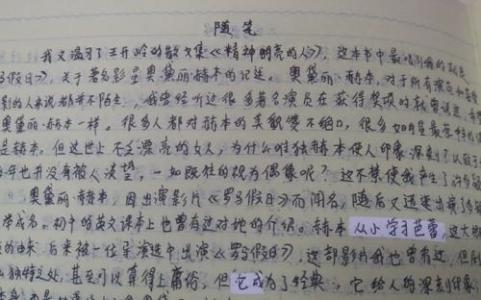 随笔
我又温习了王开岭的散文集《精神明亮的人》，这本书中最吸引我的就是
假日》，关于著名影星奥黛丽·赫本的记述。奥黛丽·赫本，对于所有演
影的人来说都并不陌生，我曾经听过很多著名演员在获得奖项时
奥黛丽·赫本一样。很多人都对赫本的美貌赞不绝口，很多
是赫本。但这世上不乏漂亮的女人，为什么唯独赫本使人印象深刻？
年也并没有被人淡望，一如既往的视为偶象呢？这不禁使我产生了许多
奥黛丽·赫本，因出演影片《罗马假日》而闻名，随后又
举成名。初中的英文课本上也曾有过对她的介绍。赫本从小学习芭蕾，这大
的由来，后来被一位导演选中出演《罗马假日》，这部影片我也曾看过，但
独特之处，甚至可以算得上庸俗，但它成为了经典，它给人的深刻印象